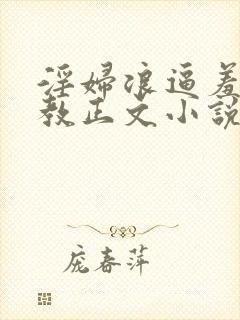 淫婦浪逼羞
教正文小說
庞春萍